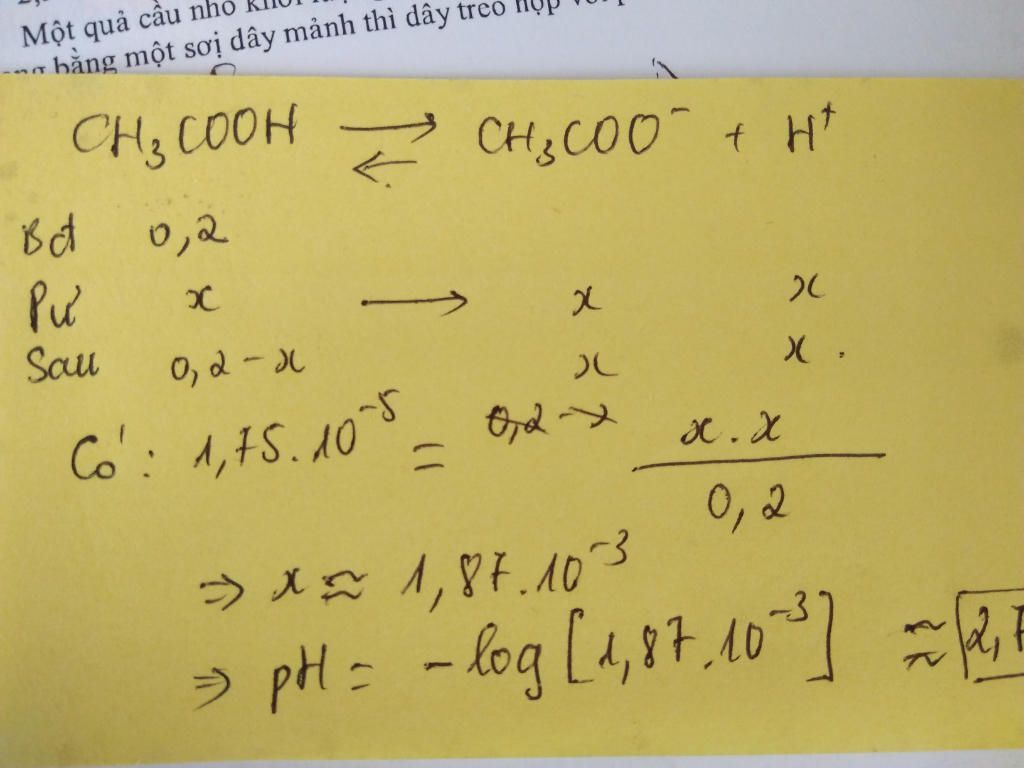 Một quả cầu nhỏ khối
bằng một sợi dây mảnh thì dây treo hợp với
CH₃COOH ⇄ CH₃COO⁻ + H⁺
Bđ 0,2
Pư x → x x
Sau 0,2-x x x.
Có: 1,75.10⁻⁵ = x.x / 0,2
⇒ x ≈ 1,87.10⁻³
⇒ pH = -log[1,87.10⁻³] ≈ 2,7